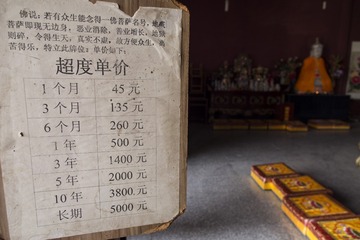 佛说：若有众生能念得一佛菩萨名号，地藏
菩萨即现无边身，恶业消除，善业增长，地狱
则碎，令得生天，真实不虚，故方便众生，离
苦得乐，特立此牌位：单价如下：
超度单价
1个月 45元
3个月 135元
6个月 260元
1年 500元
3年 1400元
5年 2000元
10年 3800元
长期 5000元